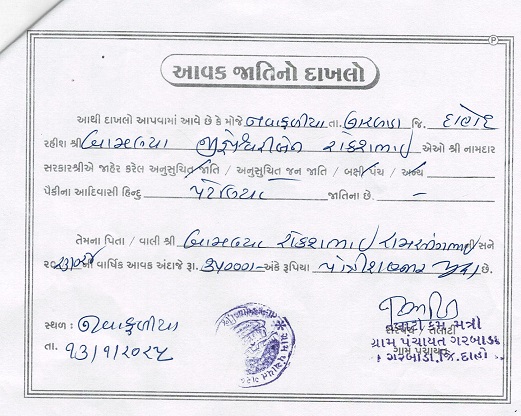 આવક જાતિનો દાખલો
આથી દાખલો આપવામાં આવે છે કે મોજે નવાફળીયા તા. ગરબાડા જિ. દાહોદ
રહીશ શ્રી રાકેશભાઇ એઓ શ્રી નામદાર
સરકારશ્રીએ જાહેર કરેલ અનુસુચિત જાતિ / અનુસુચિત જન જાતિ / બક્ષી પંચ / અન્ય
પૈકીના આદિવાસી હિન્દુ પટેલિયા જાતિના છે. –
તેમના પિતા / વાલી શ્રી રાકેશભાઇ ની સને
ની વાર્ષિક આવક અંદાજે રૂા. ૩૫૦૦૦ અંકે રૂપિયા પાંત્રીસ હજાર પુરા છે.
સ્થળ : નવાફળીયા
તલાટી કમ મંત્રી
તા. ૧૩/૧/૨૦૨૫
ગ્રામ પંચાયત ગરબાડા
ગરબાડા,જિ.દાહોદ